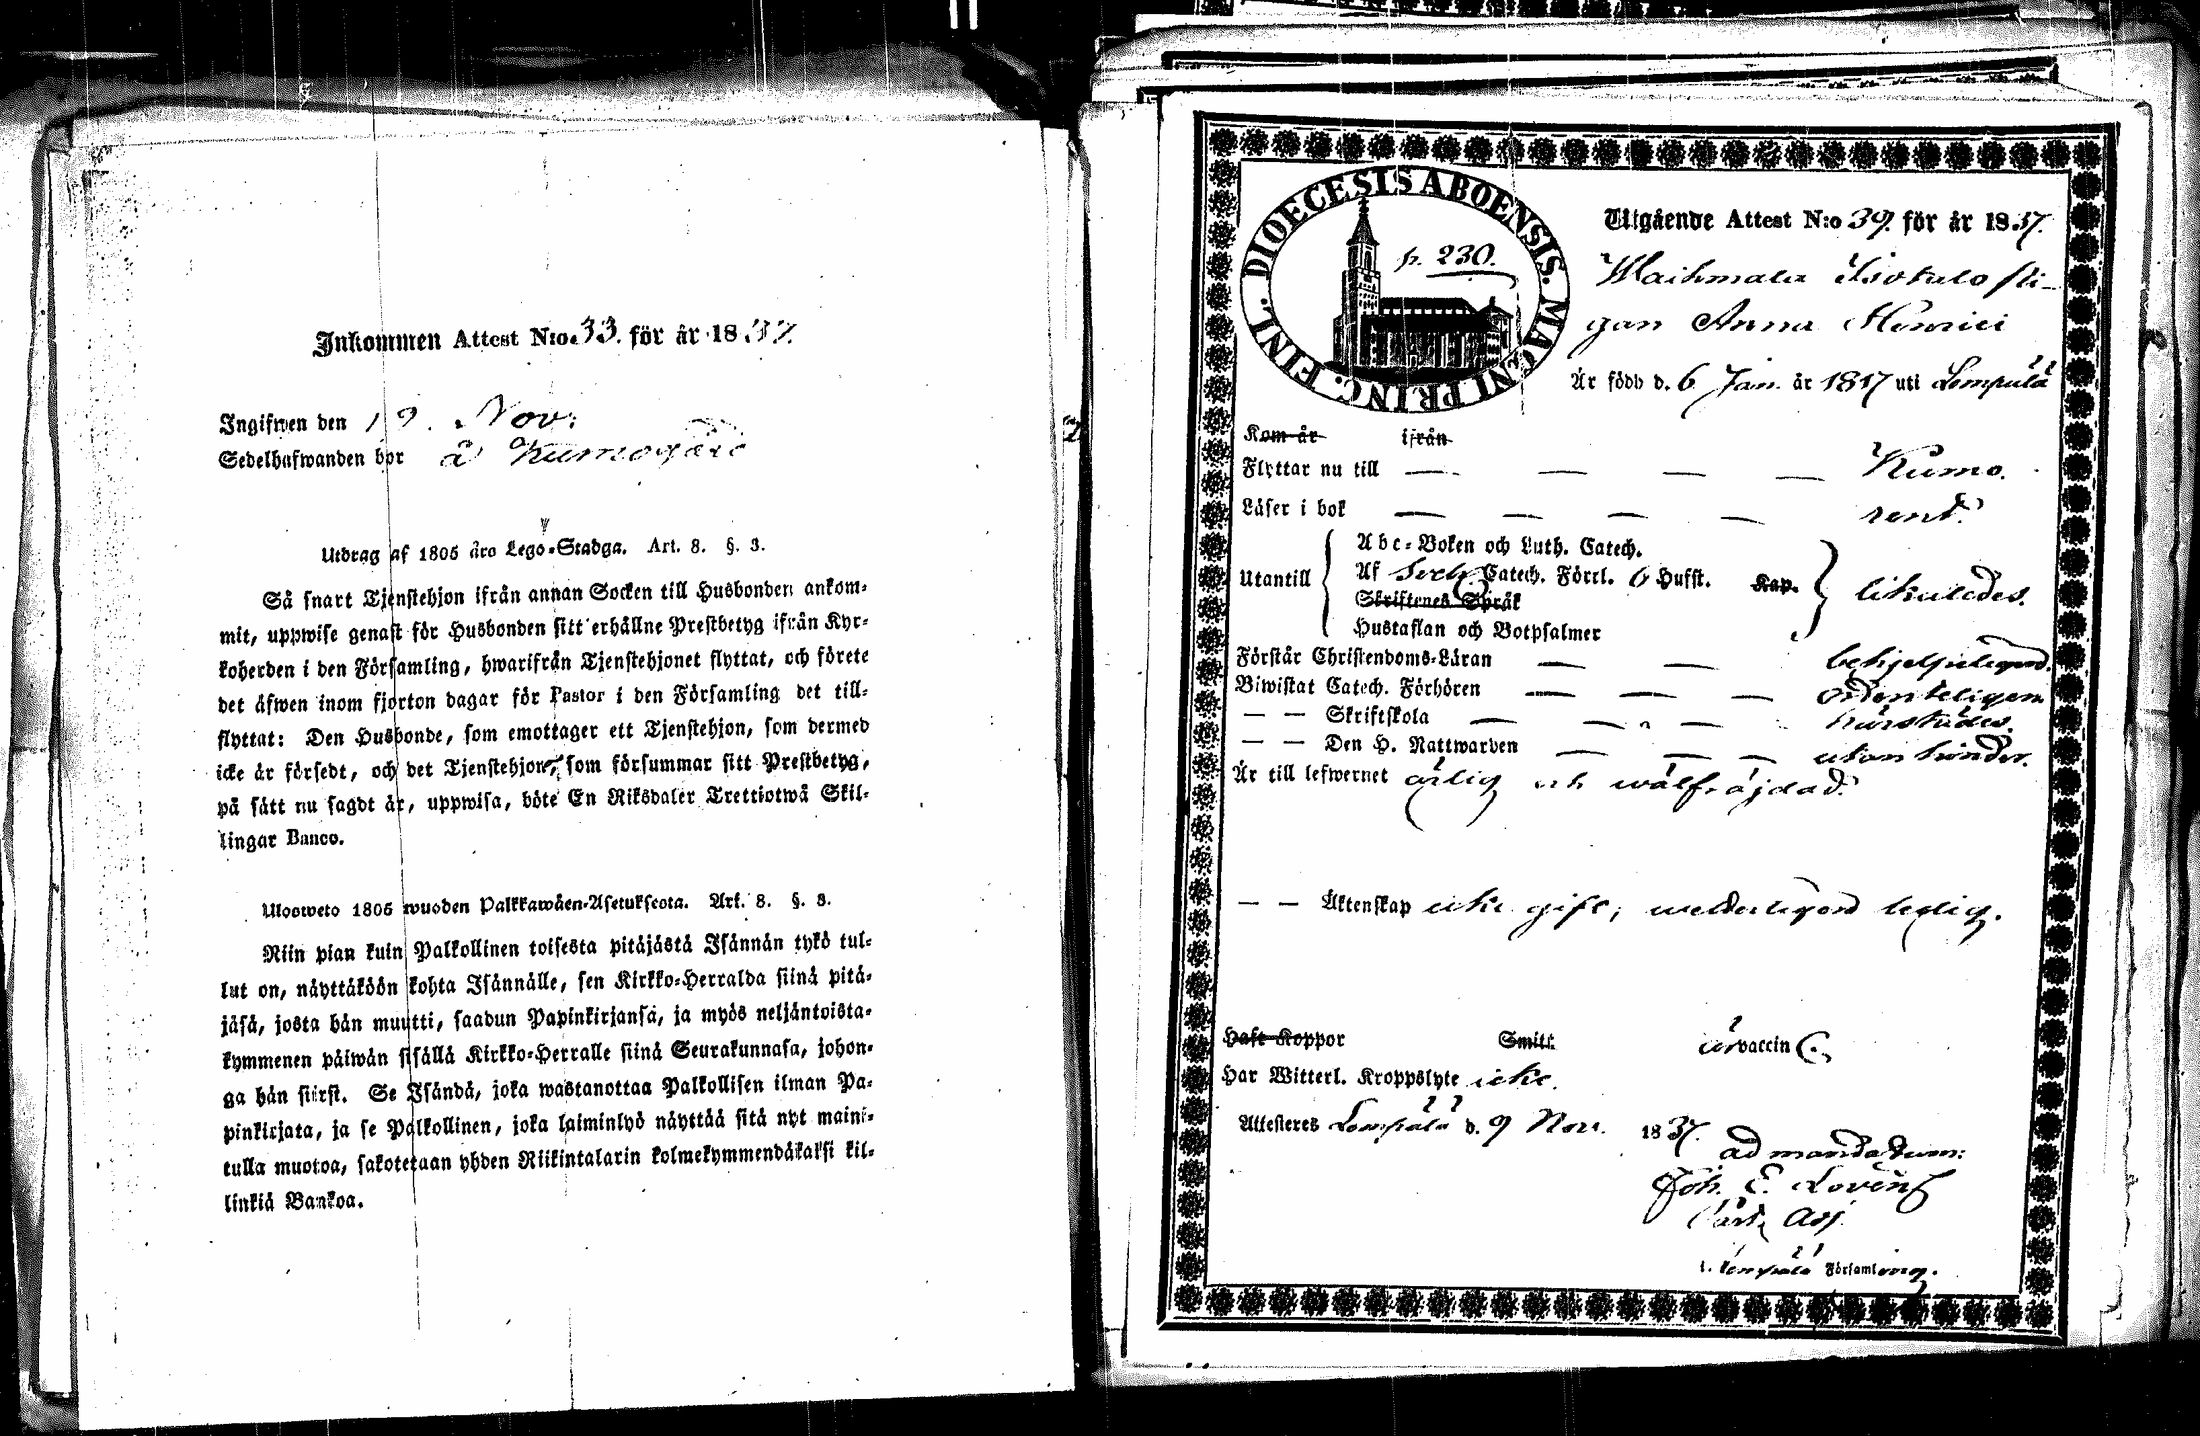 Inkommen Attest N:o 33. för år 1837.
Ingifwen den 19. Nov:
Sedelhafwanden bor å Kumogård
Utdrag af 1805 års Lego-Stadga. Art. 8. §. 3.
Så snart Tjenstehjon ifrån annan Socken till Husbonden ankom-
mit, uppwise genast för Husbonden sitt erhållne Prestbetyg ifrån Kyr-
koherden i den Församling, hwarifrån Tjenstehjonet flyttat, och förete
det äfwen inom fjorton dagar för Pastor i den Församling det till-
flyttat: Den Husbonde, som emottager ett Tjenstehjon, som dermed
icke är försedt, och det Tjenstehjon, som försummar sitt Prestbetyg,
på sätt nu sagdt är, uppwisa, böte En Riksdaler Trettiotwå Skil-
lingar Banco.
Ulosweto 1805 wuoden Palkkawäen-Asetuksesta. Art. 8. §. 3.
Niin pian kuin Palkollinen toisesta pitäjästä Isännän tykö tul-
lut on, näyttäköön kohta Isännälle, sen Kirkko-Herralda siinä pitä-
jäsä, josta hän muutti, saadun Papinkirjansa, ja myös neljäntoista-
kymmenen päiwän sisällä Kirkko-Herralle siinä Seurakunnasa, johon-
ga hän siirst. Se Isändä, joka wastanottaa Palkollisen ilman Pa-
pinkirjata, ja se Palkollinen, joka laiminlyö näyttää sitä nyt maini-
tulla muotoa, sakotetaan yhden Riikintalarin kolmekymmendäkaksi kil-
linkiä Bankoa.
DIOECESIS ABOENSIS. MAGNI PRINC. FINL.
p. 230.
Utgående Attest N:o 39. för år 1837.
Waihmala Isotalo pi-
gan Anna Henrici
Är född d. 6 Jan. år 1817 uti Lempälä
Kom år ifrån
Flyttar nu till — — — — Kumo.
Läser i bok — — — — rent.
Utantill
Abc-Boken och Luth. Catech.
Af Catech. Förkl. 6 Hufst. Kap.
Skriftenes Språk
Hustaflan och Botpsalmer
likaledes.
Förstår Christendoms-Läran — — behjelpeligen.
Biwistat Catech. Förhören — — — ordenteligen
— — Skriftskola — — — härstädes.
— — Den H. Nattwarden — — — utan hinder.
Är till lefwernet ärlig och wälfräjdad.
— — Äktenskap icke gift; wederligen ledig.
Haft Koppor Smitt. är vaccin.
Har Witterl. Kroppslyte icke.
Attesteres Lempälä d. 9 Nov. 1837.
ad mandatum:
Joh. E. Lovén
Adj.
i Lempälä Församling.